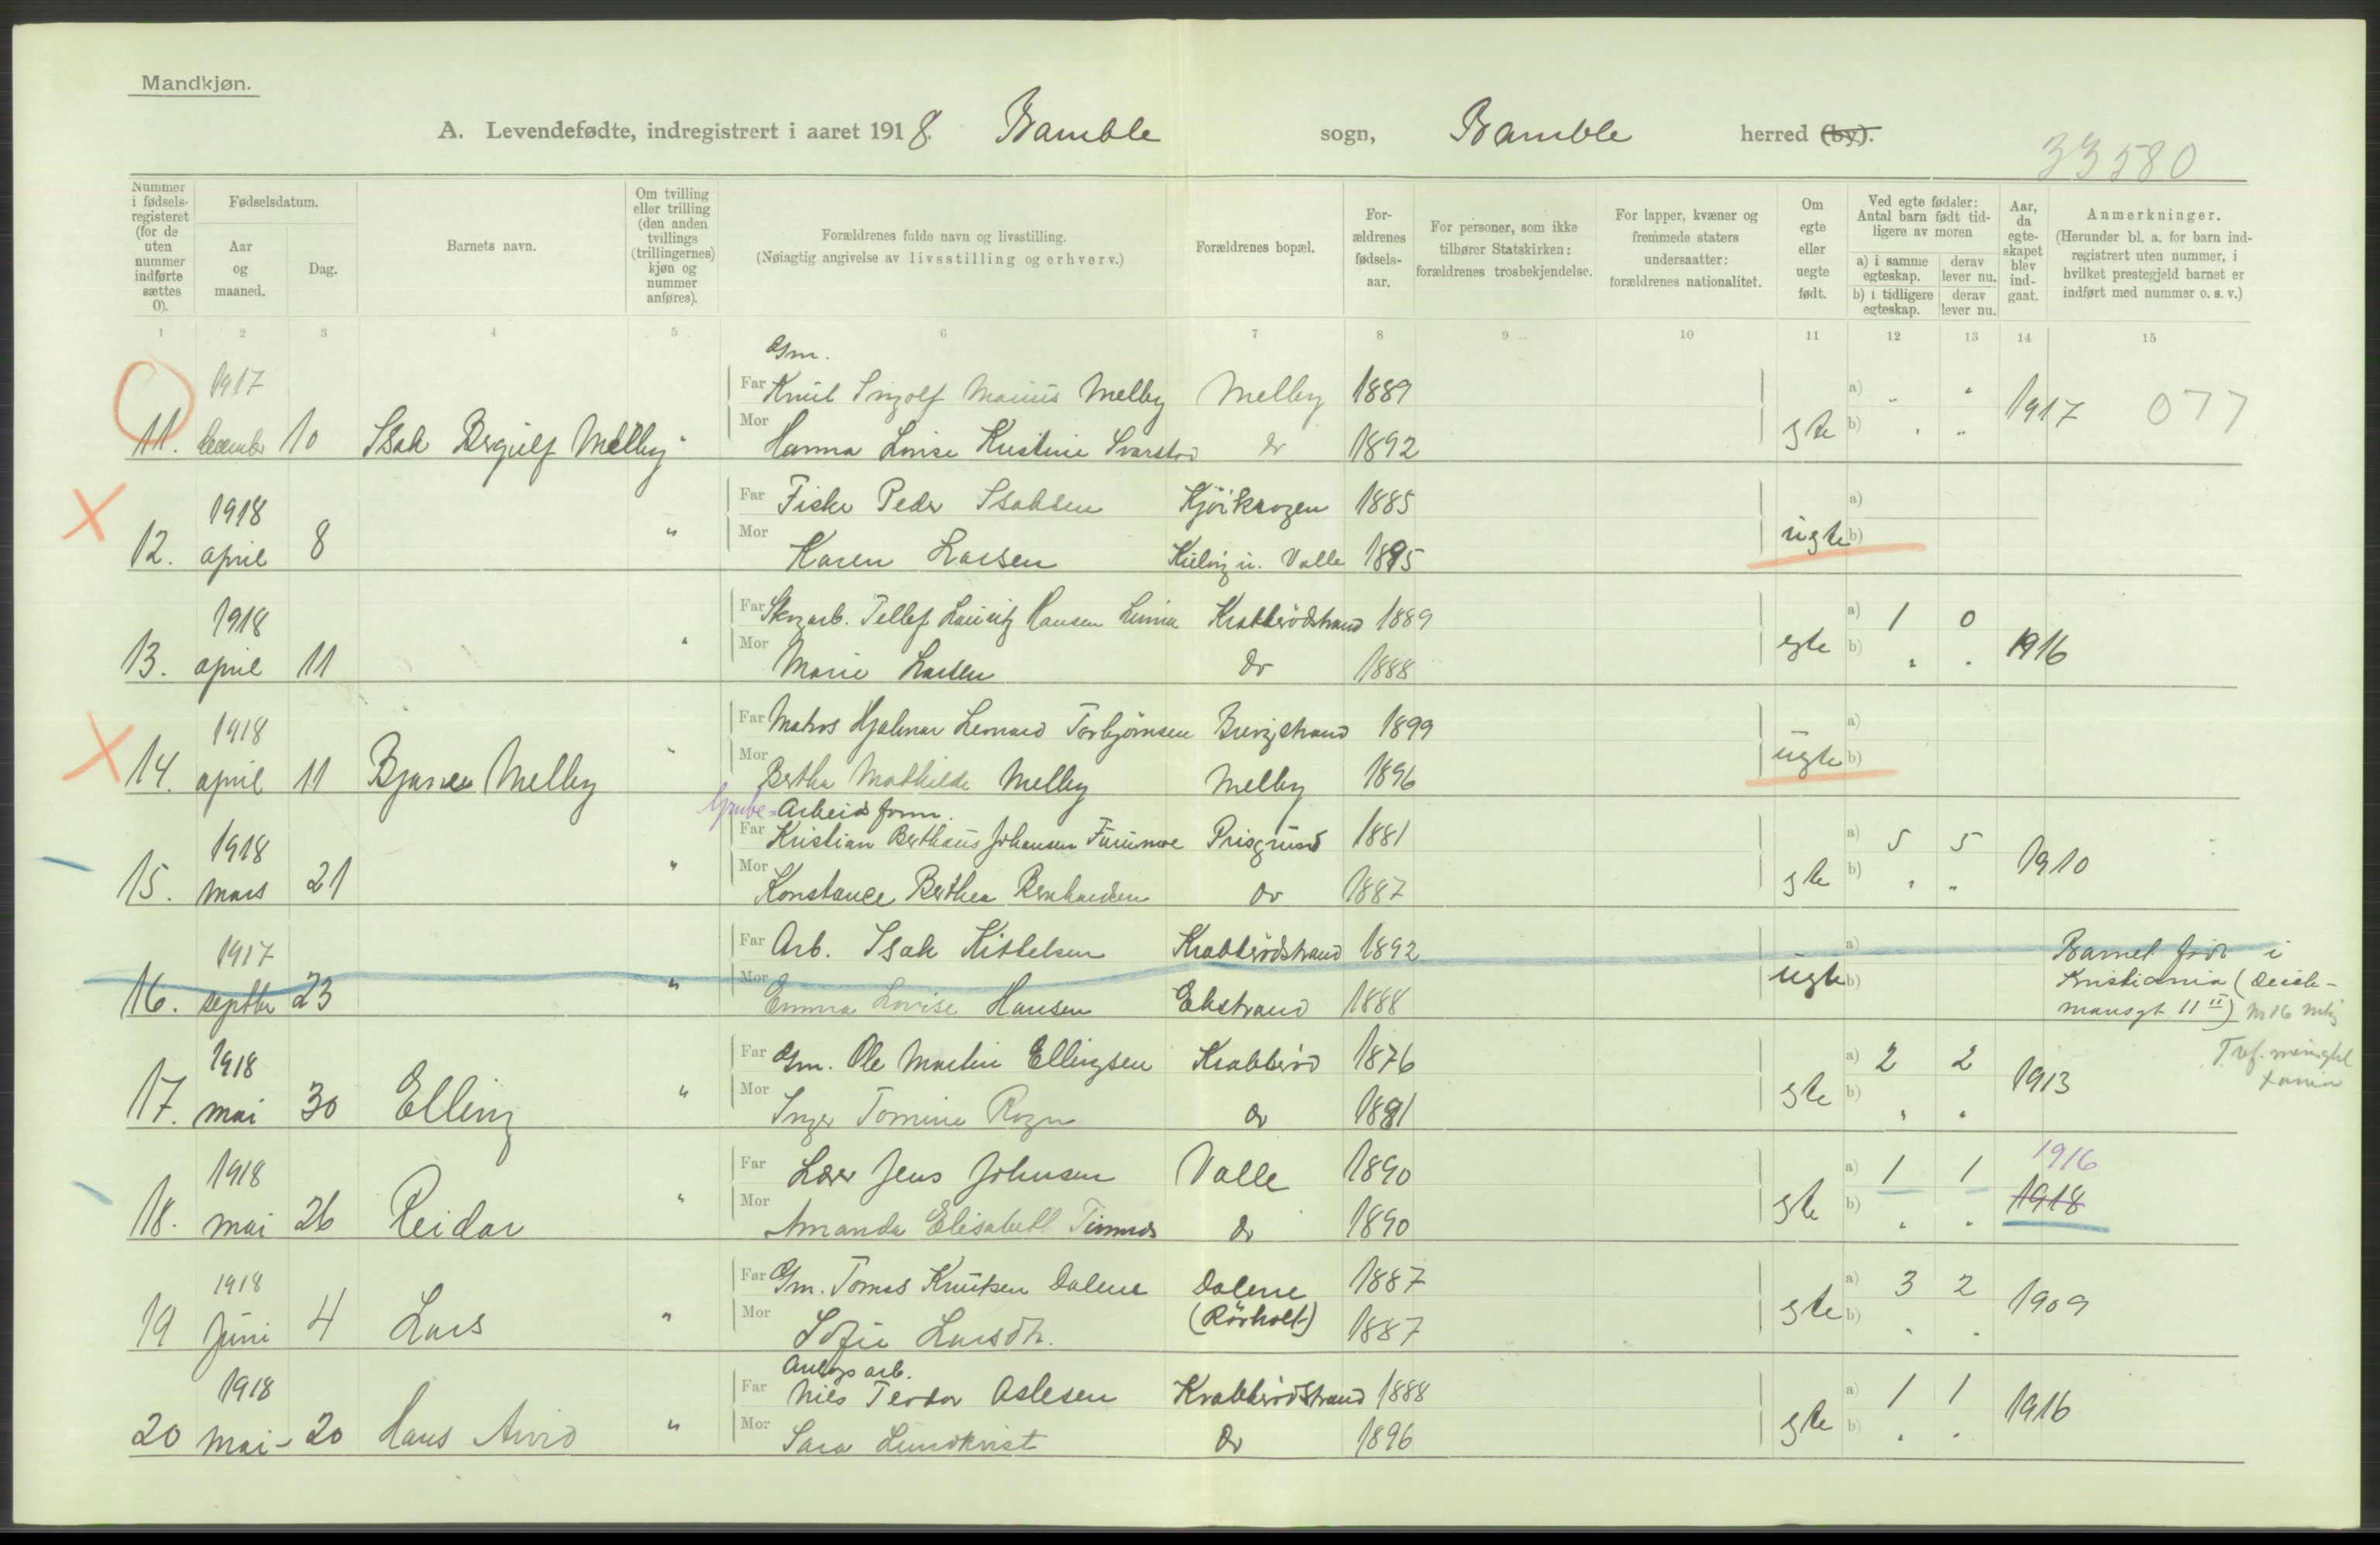 Mandkjøn.
A. Levendefødte, indregistrert i aaret 1918. Bamble sogn, Bamble herred (by).
33580
Nummer i fødselsregisteret (for de uten nummer indførte sættes 0).
Fødselsdatum.
Aar og maaned.
Dag.
Barnets navn.
Om tvilling eller trilling (den anden tvillings (trillingernes) kjøn og nummer anføres).
Forældrenes fulde navn og livsstilling.
(Nøiagtig angivelse av livsstilling og erhverv.)
Forældrenes bopæl.
Forældrenes fødselsaar.
For personer, som ikke tilhører Statskirken: forældrenes trosbekjendelse.
For lapper, kvæner og fremmede staters undersaatter: forældrenes nationalitet.
Om egte eller uegte født.
Ved egte fødsler: Antal barn født tidligere av moren
a) i samme egteskap. derav lever nu.
b) i tidligere egteskap. derav lever nu.
Aar, da egteskapet blev indgaat.
Anmerkninger.
(Herunder bl. a. for barn indregistrert uten nummer, i hvilket prestegjeld barnet er indført med nummer o. s. v.)
1 2 3 4 5 6 7 8 9 10 11 12 13 14 15
Gm.
1917 Far Knut Ingolf Marius Melby Melby 1889 a) " " 1917 077
11. december 10 Isak Bergulf Melby " Mor Hanna Lovise Kristine Do 1892 egte b) " "
1918 Far Fisker Peder Isaksen Kjöikrogen 1885 a)
12. april 8 " Mor Karen Larsen Valle 1895 uegte b)
1918 Far Tellef Lauritz Hansen Krabberödstrand 1889 a) 1 0
13. april 11 " Mor Marie Larsen Do 1888 egte b) " " 1916
1918 Far Matros Hjalmar Leonard Torbjörnsen 1899 a)
14. april 11 Bjarne Melby " Mor Bertha Mathilde Melby Melby 1896 uegte b)
Grube- Arbeidsform.
1918 Far Kristian Berthaus Johansen Furumoe Prisgrund 1881 a) 5 5
15. mars 21 " Mor Konstance Berthea Do 1887 egte b) " " 1910
1917 Far Arb. Isak Kittelsen Krabberödstrand 1892 a) Barnet född i
16. septbr 23 " Mor Emma Lovise Hansen Ekstrand 1888 uegte b) Kristiania (Deich-
mansgt 11 II) Nr 16
1918 Far Gm. Ole Martin Ellingsen Krabberöd 1876 a) 2 2
17. mai 30 Elling " Mor Inger Tomine Rogn Do 1881 egte b) " " 1913
1918 Far Lærer Jens Johnsen Valle 1890 a) 1 1 1916
18. mai 26 Reidar " Mor Amanda Elisabeth Do 1890 egte b) " " 1918
1918 Far Gm. Tomas Knutsen Dalene Dalene 1887 a) 3 2
19 Juni 4 Lars " Mor Sofie Larsdtr. (Rörholt) 1887 egte b) " " 1909
Anlegsarb.
1918 Far Nils Teodor Aslesen Krabberödstrand 1888 a) 1 1
20 mai 20 Hans Arvid " Mor Sara Lundkvist Do 1896 egte b) " " 1916